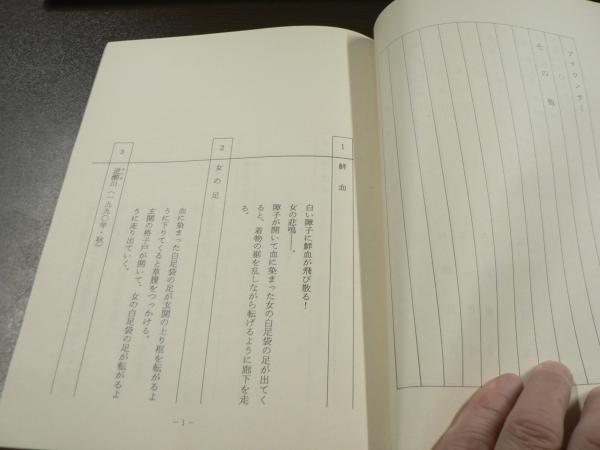 アナウンサー
その他
1
鮮血
白い障子に鮮血が飛び散る！
女の悲鳴――。
障子が開いて血に染まった女の白足袋の足が出てく
ると、着物の裾を乱しながら転げるように廊下を走
る。
2
女の足
血に染まった白足袋の足が玄関の上り框を転がるよ
うに下りてくると草履をつっかける。
玄関の格子戸が開いて、女の白足袋の足が転がるよ
うに走り出ていく。
3
逆瀬川（一九九〇年・秋）
－1－